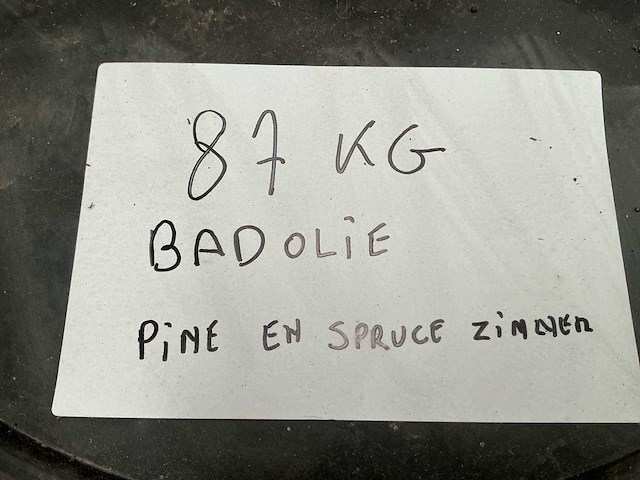 87 KG
BADOLIE
PiNE EN SPRUCE ZiMMER